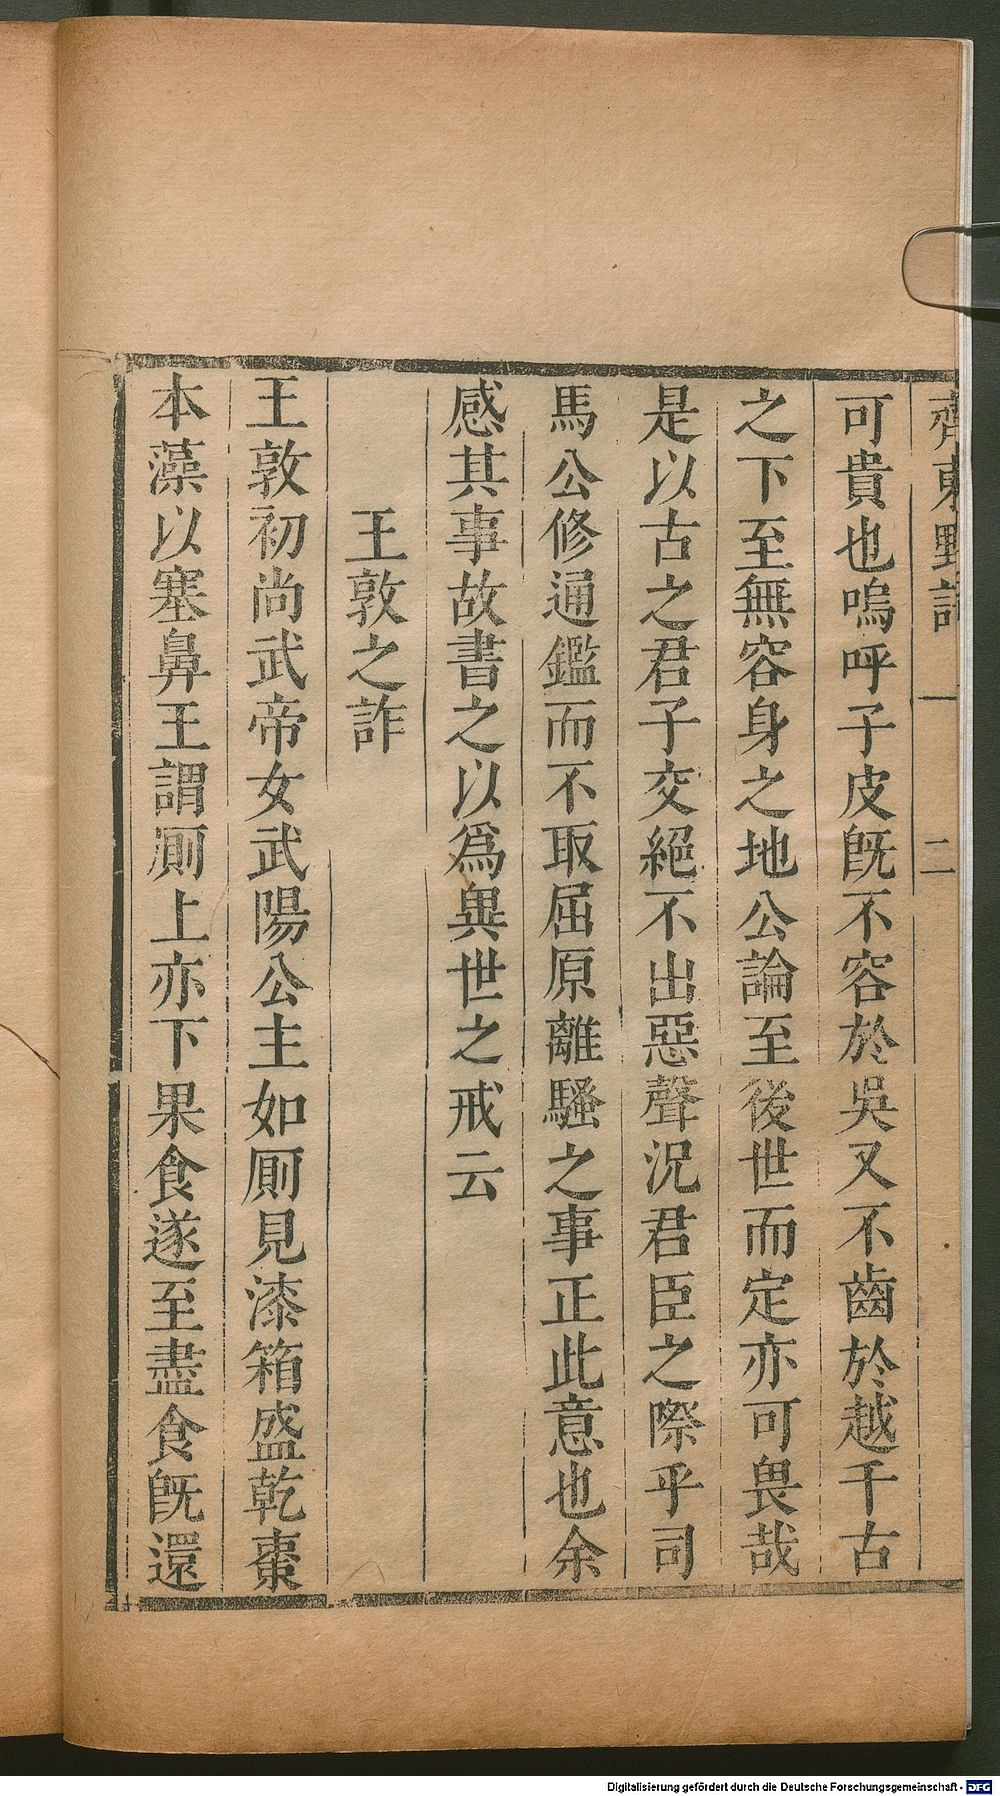 齊東野語 一 二
可貴也嗚呼子皮旣不容於吳又不齒於越千古
之下至無容身之地公論至後世而定亦可畏哉
是以古之君子交絕不出惡聲況君臣之際乎司
馬公修通鑑而不取屈原離騷之事正此意也余
感其事故書之以爲異世之戒云
王敦之詐
王敦初尚武帝女武陽公主如厠見漆箱盛乾棗
本藻以塞鼻王謂厠上亦下果食遂至盡食旣還
Digitalisierung gefördert durch die Deutsche Forschungsgemeinschaft - DFG